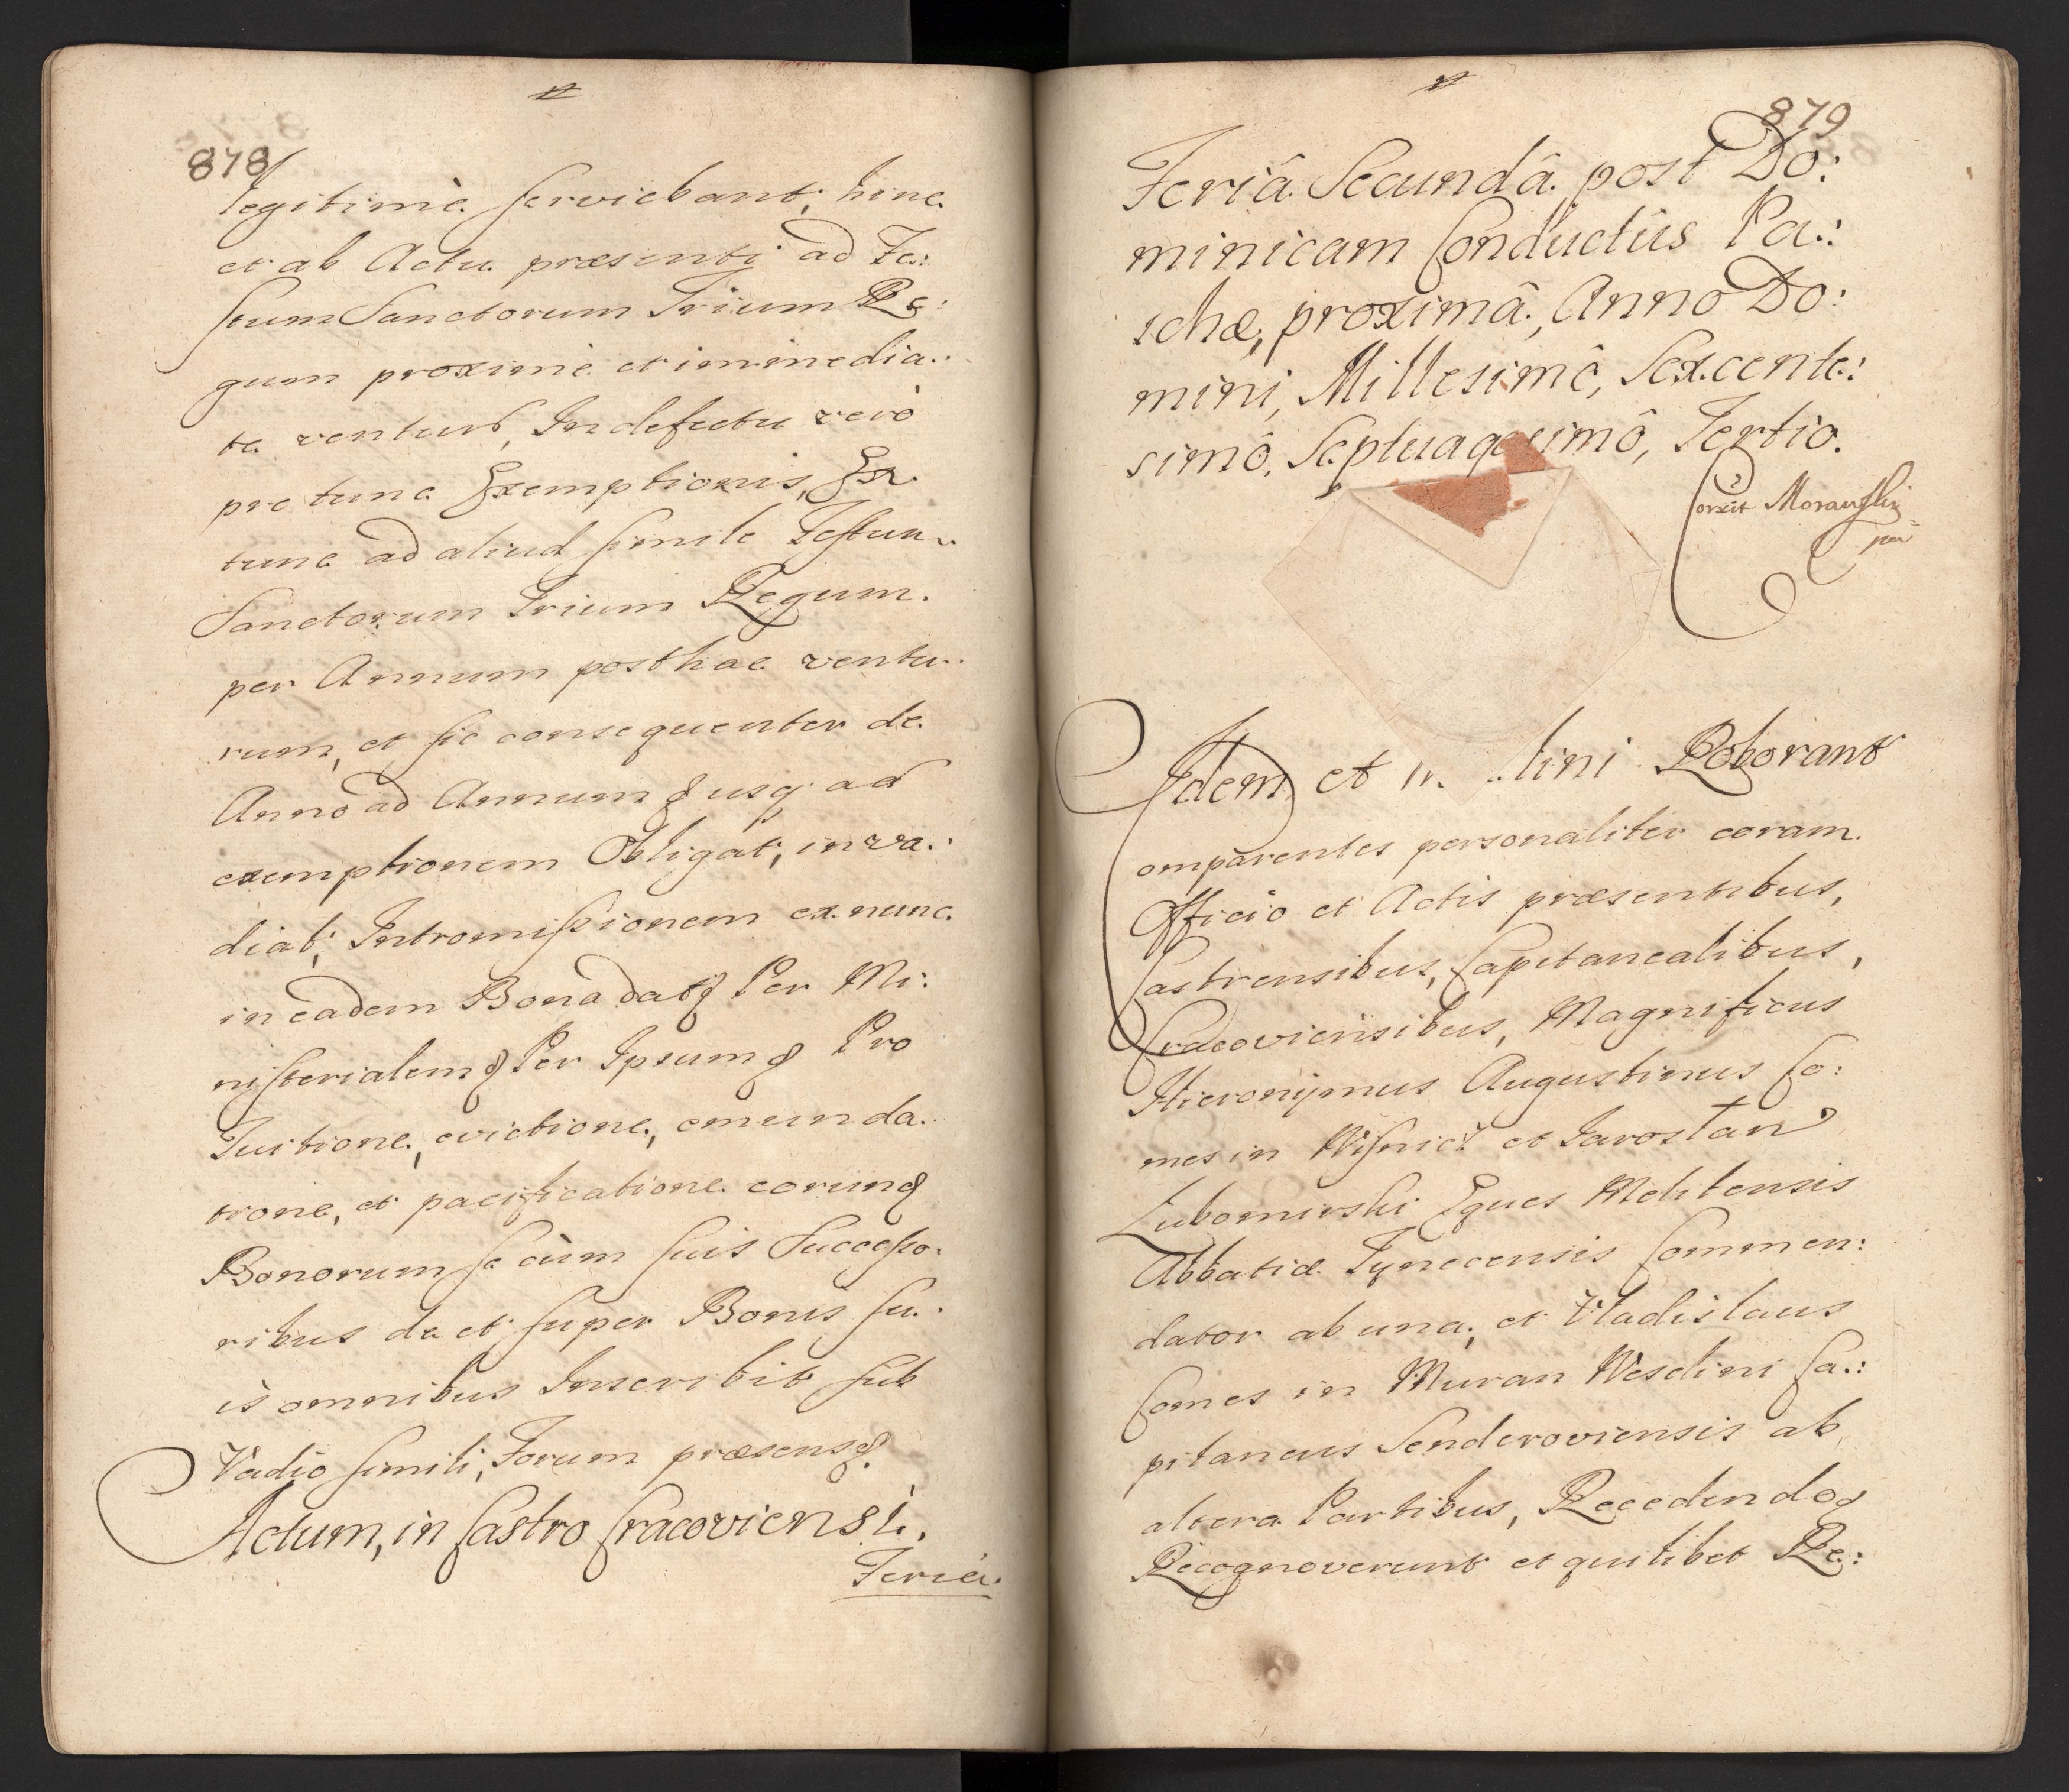 878
legitimè serviebant, hinc
et ab Actu præsenti ad Fe:
stum Sanctorum Trium Re:
gum proximè et immedia:
te venturũ, In defectu verò
pro tunc Exemptionis, Ex
tunc ad aliud simile Festum
Sanctorum Trium Regum
per Annum posthac ventu:
rum, et sic consequenter de
Anno ad Annum & usq ad
exemptionem Obligat, inva:
diat, Intromissionem ex nunc
in eadem Bona dat& Per Mi:
nisterialem& Per Ipsum& Pro
Tuitione, evictione, emunda:
tione, et pacificatione eorum&
Bonorum se cùm suis Successo:
ribus de et super Bonis su:
is omnibus Inscribit sub
Vadio simili, Forum præsens&
Actum, in Castro Cracoviensi.
Feriâ
879
Feriâ Secundâ post Do:
minicam Conductûs Pa:
schæ, proximâ, Anno Do:
mini, Millesimô, Sexcente:
simô, Septuagesimô, Tertio.
Correxit Morawski
mpr
Idem et lini Roborant
Comparentes personaliter coram
Officio et Actis præsentibus,
Castrensibus, Capitanealibus,
Cracoviensibus, Magnificus
Hieronymus Augustinus Co:
mes in Wisnicz et Jarosław
Lubomirski Eques Melitensis
Abbatiæ Tynecensis Commen:
dator ab una, et Vladislaus
Comes in Muran Weselini Ca:
pitaneus Senderoviensis ab
altera Partibus, Recedendo&
Recognoverunt et quilibet Re: